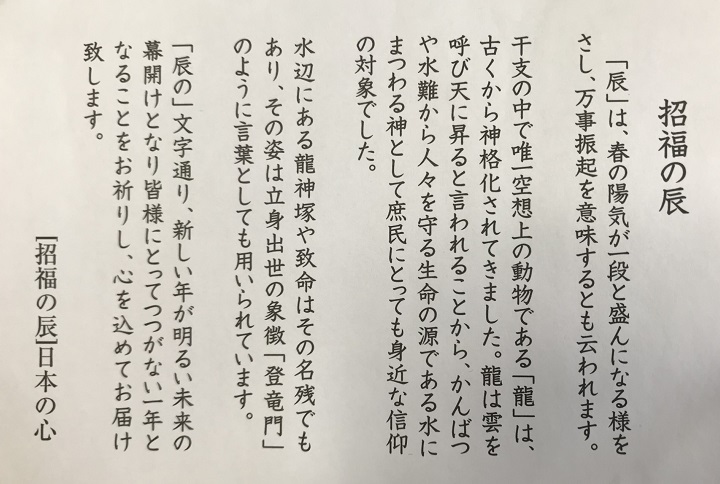 招福の辰
「辰」は、春の陽気が一段と盛んになる様を
さし、万事振起を意味するとも云われます。
干支の中で唯一空想上の動物である「龍」は、
古くから神格化されてきました。龍は雲を
呼び天に昇ると言われることから、かんばつ
や水難から人々を守る生命の源である水に
まつわる神として庶民にとっても身近な信仰
の対象でした。
水辺にある龍神塚や致命はその名残でも
あり、その姿は立身出世の象徴「登竜門」
のように言葉としても用いられています。
「辰の」文字通り、新しい年が明るい未来の
幕開けとなり皆様にとってつつがない一年と
なることをお祈りし、心を込めてお届け
致します。
[招福の辰]日本の心